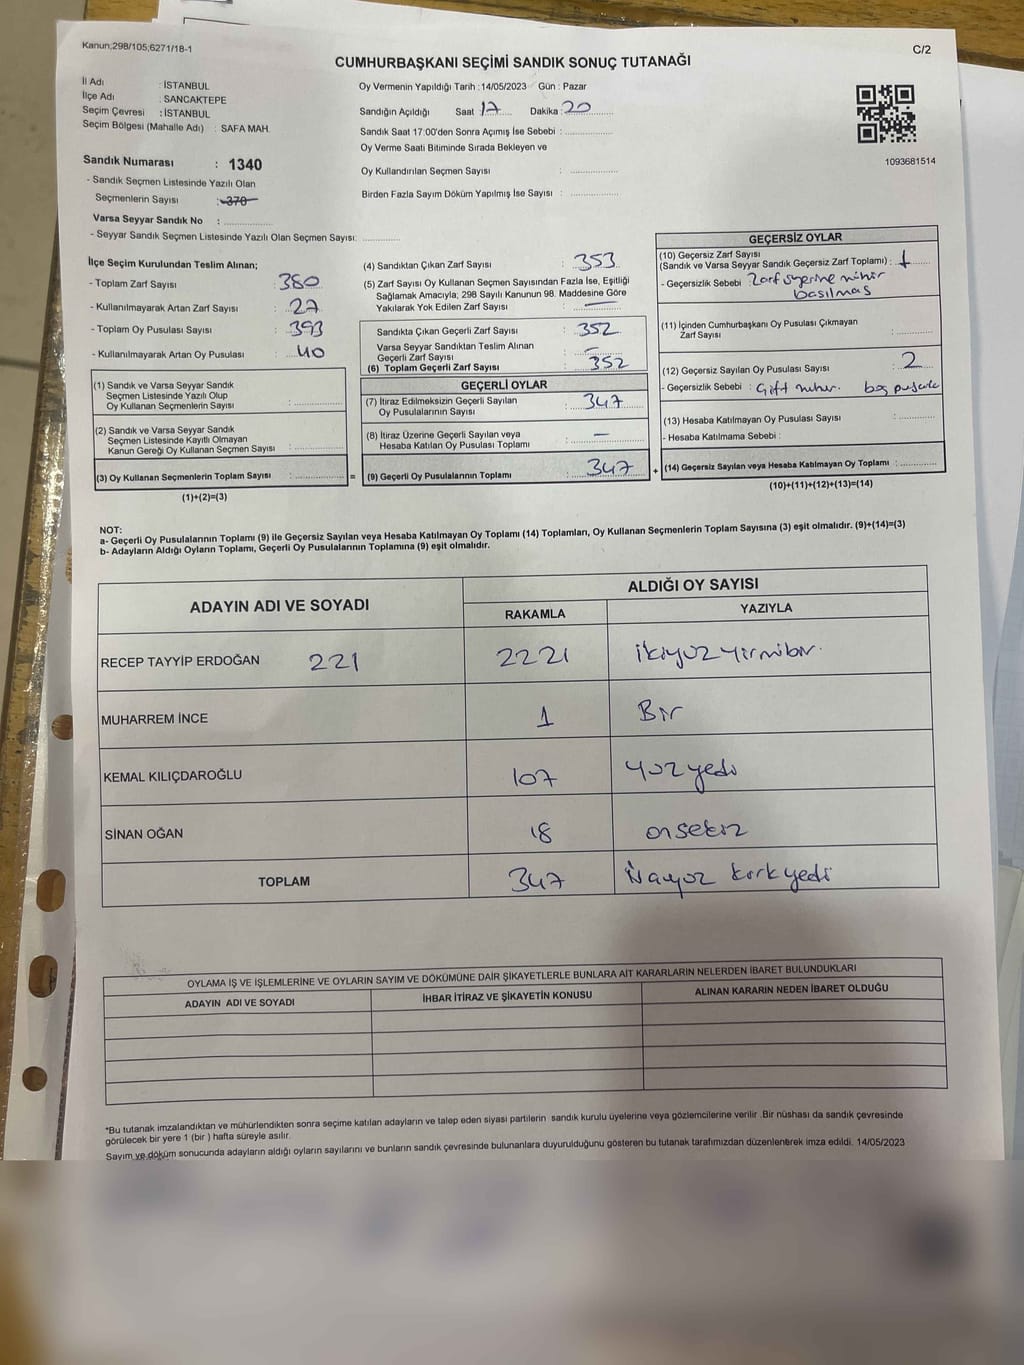 Kanun;298/105;6271/18-1
C/2
CUMHURBAŞKANI SEÇİMİ SANDIK SONUÇ TUTANAĞI
İl Adı : İSTANBUL
İlçe Adı : SANCAKTEPE
Seçim Çevresi : İSTANBUL
Seçim Bölgesi (Mahalle Adı) : SAFA MAH.
Sandık Numarası : 1340
- Sandık Seçmen Listesinde Yazılı Olan
Seçmenlerin Sayısı : 370
Varsa Seyyar Sandık No :
- Seyyar Sandık Seçmen Listesinde Yazılı Olan Seçmen Sayısı:
Oy Vermenin Yapıldığı Tarih :14/05/2023 Gün : Pazar
Sandığın Açıldığı Saat 17 Dakika : 20
Sandık Saat 17:00'den Sonra Açımış İse Sebebi :
Oy Verme Saati Bitiminde Sırada Bekleyen ve
Oy Kullandırılan Seçmen Sayısı :
Birden Fazla Sayım Döküm Yapılmış İse Sayısı :
1093681514
İlçe Seçim Kurulundan Teslim Alınan;
- Toplam Zarf Sayısı : 380
- Kullanılmayarak Artan Zarf Sayısı : 27
- Toplam Oy Pusulası Sayısı : 393
- Kullanılmayarak Artan Oy Pusulası : 40
(1) Sandık ve Varsa Seyyar Sandık
Seçmen Listesinde Yazılı Olup
Oy Kullanan Seçmenlerin Sayısı :
(2) Sandık ve Varsa Seyyar Sandık
Seçmen Listesinde Kayıtlı Olmayan
Kanun Gereği Oy Kullanan Seçmen Sayısı :
(3) Oy Kullanan Seçmenlerin Toplam Sayısı : =
(1)+(2)=(3)
(4) Sandıktan Çıkan Zarf Sayısı : 353
(5) Zarf Sayısı Oy Kullanan Seçmen Sayısından Fazla İse, Eşitliği
Sağlamak Amacıyla; 298 Sayılı Kanunun 98. Maddesine Göre
Yakılarak Yok Edilen Zarf Sayısı : —
Sandıkta Çıkan Geçerli Zarf Sayısı : 352
Varsa Seyyar Sandıktan Teslim Alınan
Geçerli Zarf Sayısı : —
(6) Toplam Geçerli Zarf Sayısı : 352
GEÇERLİ OYLAR
(7) İtiraz Edilmeksizin Geçerli Sayılan
Oy Pusulalarının Sayısı : 347
(8) İtiraz Üzerine Geçerli Sayılan veya
Hesaba Katılan Oy Pusulası Toplamı : —
(9) Geçerli Oy Pusulalarının Toplamı : 347 +
GEÇERSİZ OYLAR
(10) Geçersiz Zarf Sayısı
(Sandık ve Varsa Seyyar Sandık Geçersiz Zarf Toplamı) : 1
- Geçersizlik Sebebi Zarf üzerine mühür
basılmas
(11) İçinden Cumhurbaşkanı Oy Pusulası Çıkmayan
Zarf Sayısı :
(12) Geçersiz Sayılan Oy Pusulası Sayısı : 2
- Geçersizlik Sebebi : Çift mühür. boş pusula
(13) Hesaba Katılmayan Oy Pusulası Sayısı :
- Hesaba Katılmama Sebebi :
(14) Geçersiz Sayılan veya Hesaba Katılmayan Oy Toplamı :
(10)+(11)+(12)+(13)=(14)
NOT:
a- Geçerli Oy Pusulalarının Toplamı (9) ile Geçersiz Sayılan veya Hesaba Katılmayan Oy Toplamı (14) Toplamları, Oy Kullanan Seçmenlerin Toplam Sayısına (3) eşit olmalıdır. (9)+(14)=(3)
b- Adayların Aldığı Oyların Toplamı, Geçerli Oy Pusulalarının Toplamına (9) eşit olmalıdır.
ADAYIN ADI VE SOYADI ALDIĞI OY SAYISI
RAKAMLA YAZIYLA
RECEP TAYYİP ERDOĞAN 221 2221 ikiyüzyirmibir.
MUHARREM İNCE 1 Bir
KEMAL KILIÇDAROĞLU 107 yüzyedi
SİNAN OĞAN 18 onsekiz
TOPLAM 347 üçyüz kırkyedi
OYLAMA İŞ VE İŞLEMLERİNE VE OYLARIN SAYIM VE DÖKÜMÜNE DAİR ŞİKAYETLERLE BUNLARA AİT KARARLARIN NELERDEN İBARET BULUNDUKLARI
ADAYIN ADI VE SOYADI İHBAR İTİRAZ VE ŞİKAYETİN KONUSU ALINAN KARARIN NEDEN İBARET OLDUĞU
*Bu tutanak imzalandıktan ve mühürlendikten sonra seçime katılan adayların ve talep eden siyasi partilerin sandık kurulu üyelerine veya gözlemcilerine verilir .Bir nüshası da sandık çevresinde
görülecek bir yere 1 (bir ) hafta süreyle asılır.
Sayım ve döküm sonucunda adayların aldığı oyların sayılarını ve bunların sandık çevresinde bulunanlara duyurulduğunu gösteren bu tutanak tarafımızdan düzenlenerek imza edildi. 14/05/2023